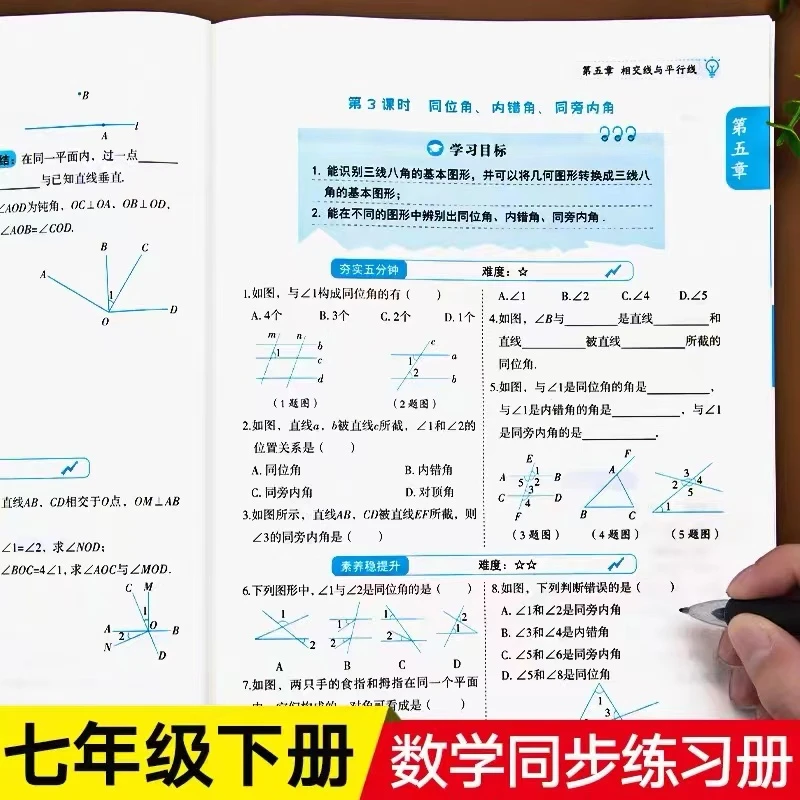 B
A
l
结：在同一平面内，过一点
与已知直线垂直.
∠AOD为钝角，OC⊥OA，OB⊥OD，
∠AOB=∠COD.
B C
A
1
O D
直线AB，CD相交于O点，OM⊥AB
∠1=∠2，求∠NOD；
∠BOC=4∠1，求∠AOC与∠MOD.
C M
1
A 2 O B
N
D
第五章 相交线与平行线
第五章
第3课时 同位角、内错角、同旁内角
学习目标
1. 能识别三线八角的基本图形，并可以将几何图形转换成三线八
角的基本图形；
2. 能在不同的图形中辨别出同位角、内错角、同旁内角.
夯实五分钟 难度：☆
1.如图，与∠1构成同位角的有（ ）
A. 4个 B. 3个 C. 2个 D. 1个
m n
1 b
c
d
（1题图）
c
1 a
2 b
（2题图）
2.如图，直线a，b被直线c所截，∠1和∠2的
位置关系是（ ）
A. 同位角 B. 内错角
C. 同旁内角 D. 对顶角
3.如图所示，直线AB，CD被直线EF所截，则
∠3的同旁内角是（ ）
A.∠1 B.∠2 C.∠4 D.∠5
4.如图，∠B与________是直线________和
直线________被直线________所截的
同位角.
5.如图，与∠1是同位角的角是________，
与∠1是内错角的角是________，与∠1
是同旁内角的是________.
E
A 5 1 2 B
C 3 4 D
F
（3题图）
F
A
B C
（4题图）
3
2 4
5
1
（5题图）
素养稳提升 难度：☆☆
6.下列图形中，∠1与∠2是同位角的是（ ）
1 2
1 2
1 2
2 1
A B C D
7.如图，两只手的食指和拇指在同一个平面
8.如图，下列判断错误的是（ ）
A. ∠1和∠2是同旁内角
B. ∠3和∠4是内错角
C. ∠5和∠6是同旁内角
D. ∠5和∠8是同位角
1
3
七年级下册
数学同步练习册